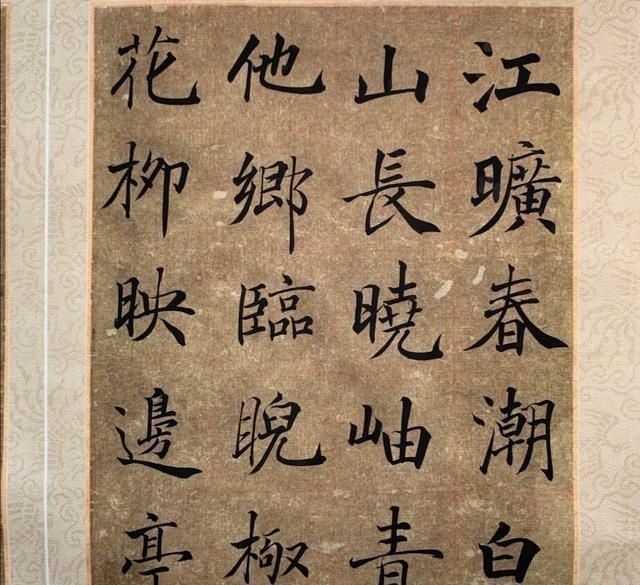 江曠春潮白
山長曉岫青
他鄉臨睨極
花柳映邊亭